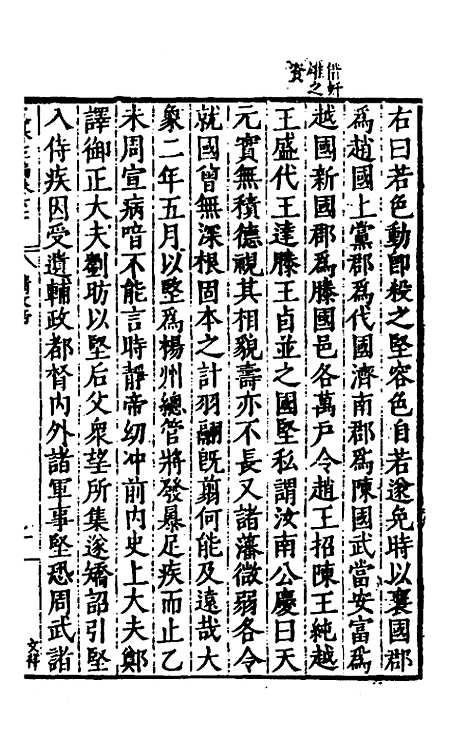 借軒
雄之
資
右曰若色動即殺之堅容色自若遂免時以襄國郡
爲趙國上黨郡爲代國濟南郡爲陳國武當安富爲
越國新國郡爲滕國邑各萬戸令趙王招陳王純越
王盛代王達滕王卣並之國堅私謂汝南公慶曰天
元實無積德視其相貌壽亦不長又諸藩微弱各令
就國曾無深根固本之計羽翮旣翦何能及遠哉大
象二年五月以堅爲楊州緫管將發暴足疾而止乙
未周宣病喑不能言時靜帝幼冲前內史上大夫鄭
譯御正大夫劉昉以堅后父衆望所集遂矯詔引堅
入侍疾因受遺輔政都督內外諸軍事堅恐周武諸